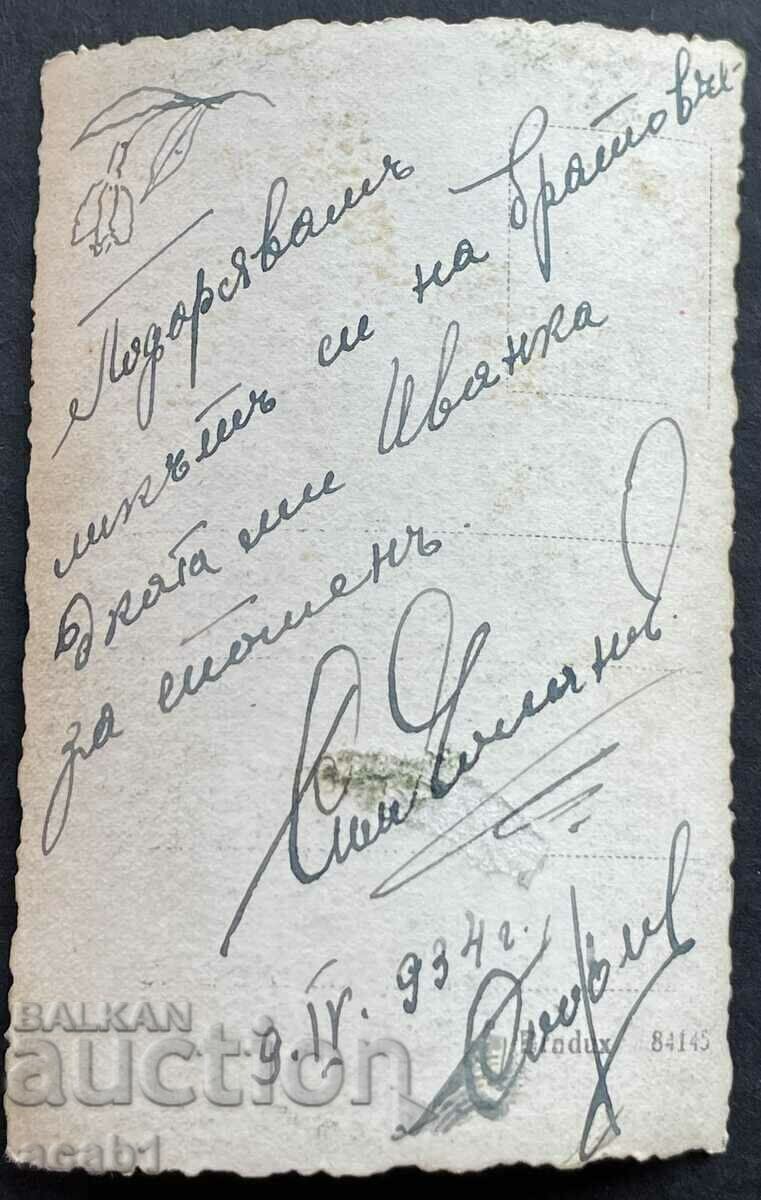 Подорявамъ
ликътъ си на братовче-
дката ми Иванка
за споменъ.
9.IV.934г.
София
Produx 84145
BALKAN
auction
acab1